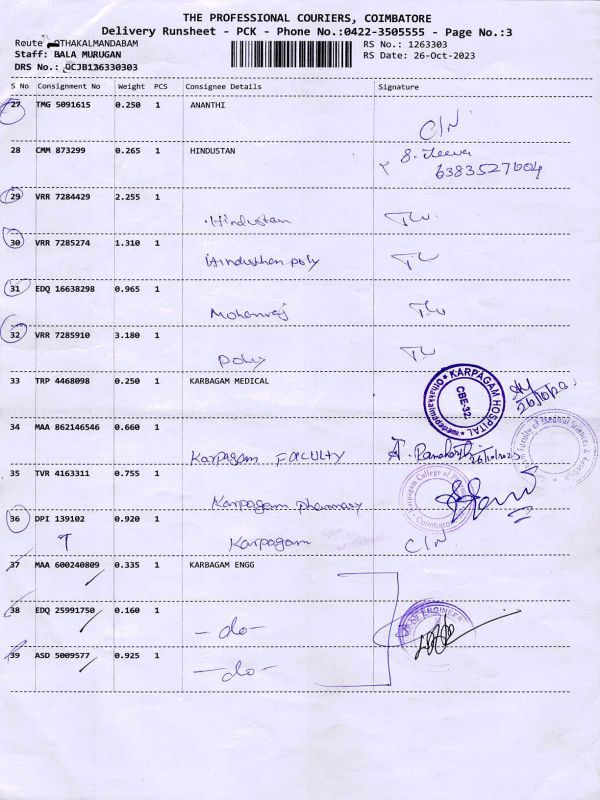 THE PROFESSIONAL COURIERS, COIMBATORE
Delivery Runsheet - PCK - Phone No.:0422-3505555 - Page No.:3
Route OTHAKALMANDABAM
Staff: BALA MURUGAN
DRS No.: OCJB126330303
RS No.: 1263303
RS Date: 26-Oct-2023
S No Consignment No Weight PCS Consignee Details Signature
27 TMG 5091615 0.250 1 ANANTHI C/N
28 CMM 873299 0.265 1 HINDUSTAN S. Jeeva
6383527604
29 VRR 7284429 2.255 1
Hindustan
30 VRR 7285274 1.310 1
Hindusthan poly
31 EDQ 16638298 0.965 1
Mohanraj
32 VRR 7285910 3.180 1
poly
33 TRP 4468098 0.250 1 KARBAGAM MEDICAL
KARPAGAM HOSPITAL
CBE-32
26/10/23
34 MAA 862146546 0.660 1
Karpagam FACULTY
26/10/2023
35 TVR 4163311 0.755 1
Karpagam pharmacy
Karpagam College of
Coimbatore
36 DPI 139102 0.920 1
T Karpagam C/N
37 MAA 600240809 0.335 1 KARBAGAM ENGG
38 EDQ 25991750 0.160 1
- do -
OF ENGINEER
39 ASD 5009577 0.925 1
- do -